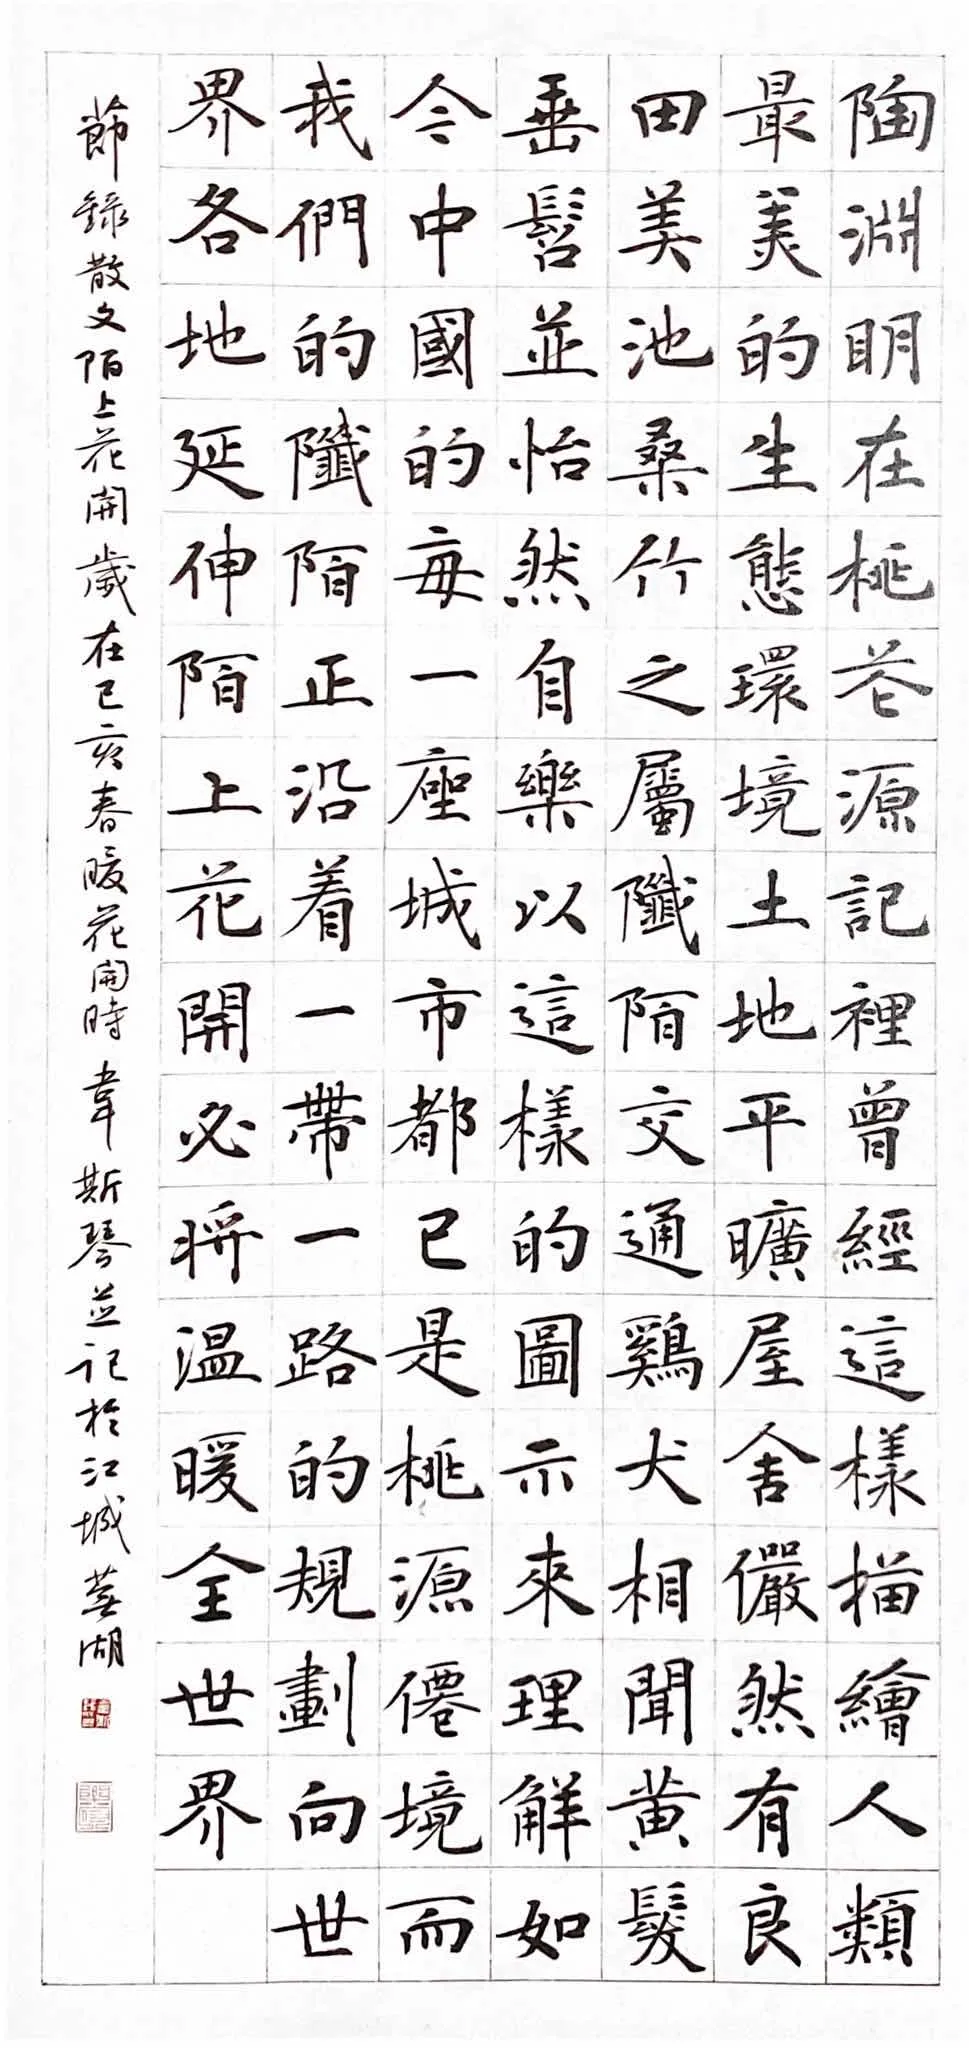 陶淵明在桃花源記裡曾經這樣描繪人類
最美的生態環境土地平曠屋舍儼然有良
田美池桑竹之屬阡陌交通鷄犬相聞黄髮
垂髫並怡然自樂以這樣的圖示來理解如
今中國的每一座城市都已是桃源僊境而
我們的阡陌正沿着一帶一路的規劃向世
界各地延伸陌上花開必將温暖全世界
節録散文陌上花開歲在己亥春暖花開時韋斯琴並記於江城蕪湖